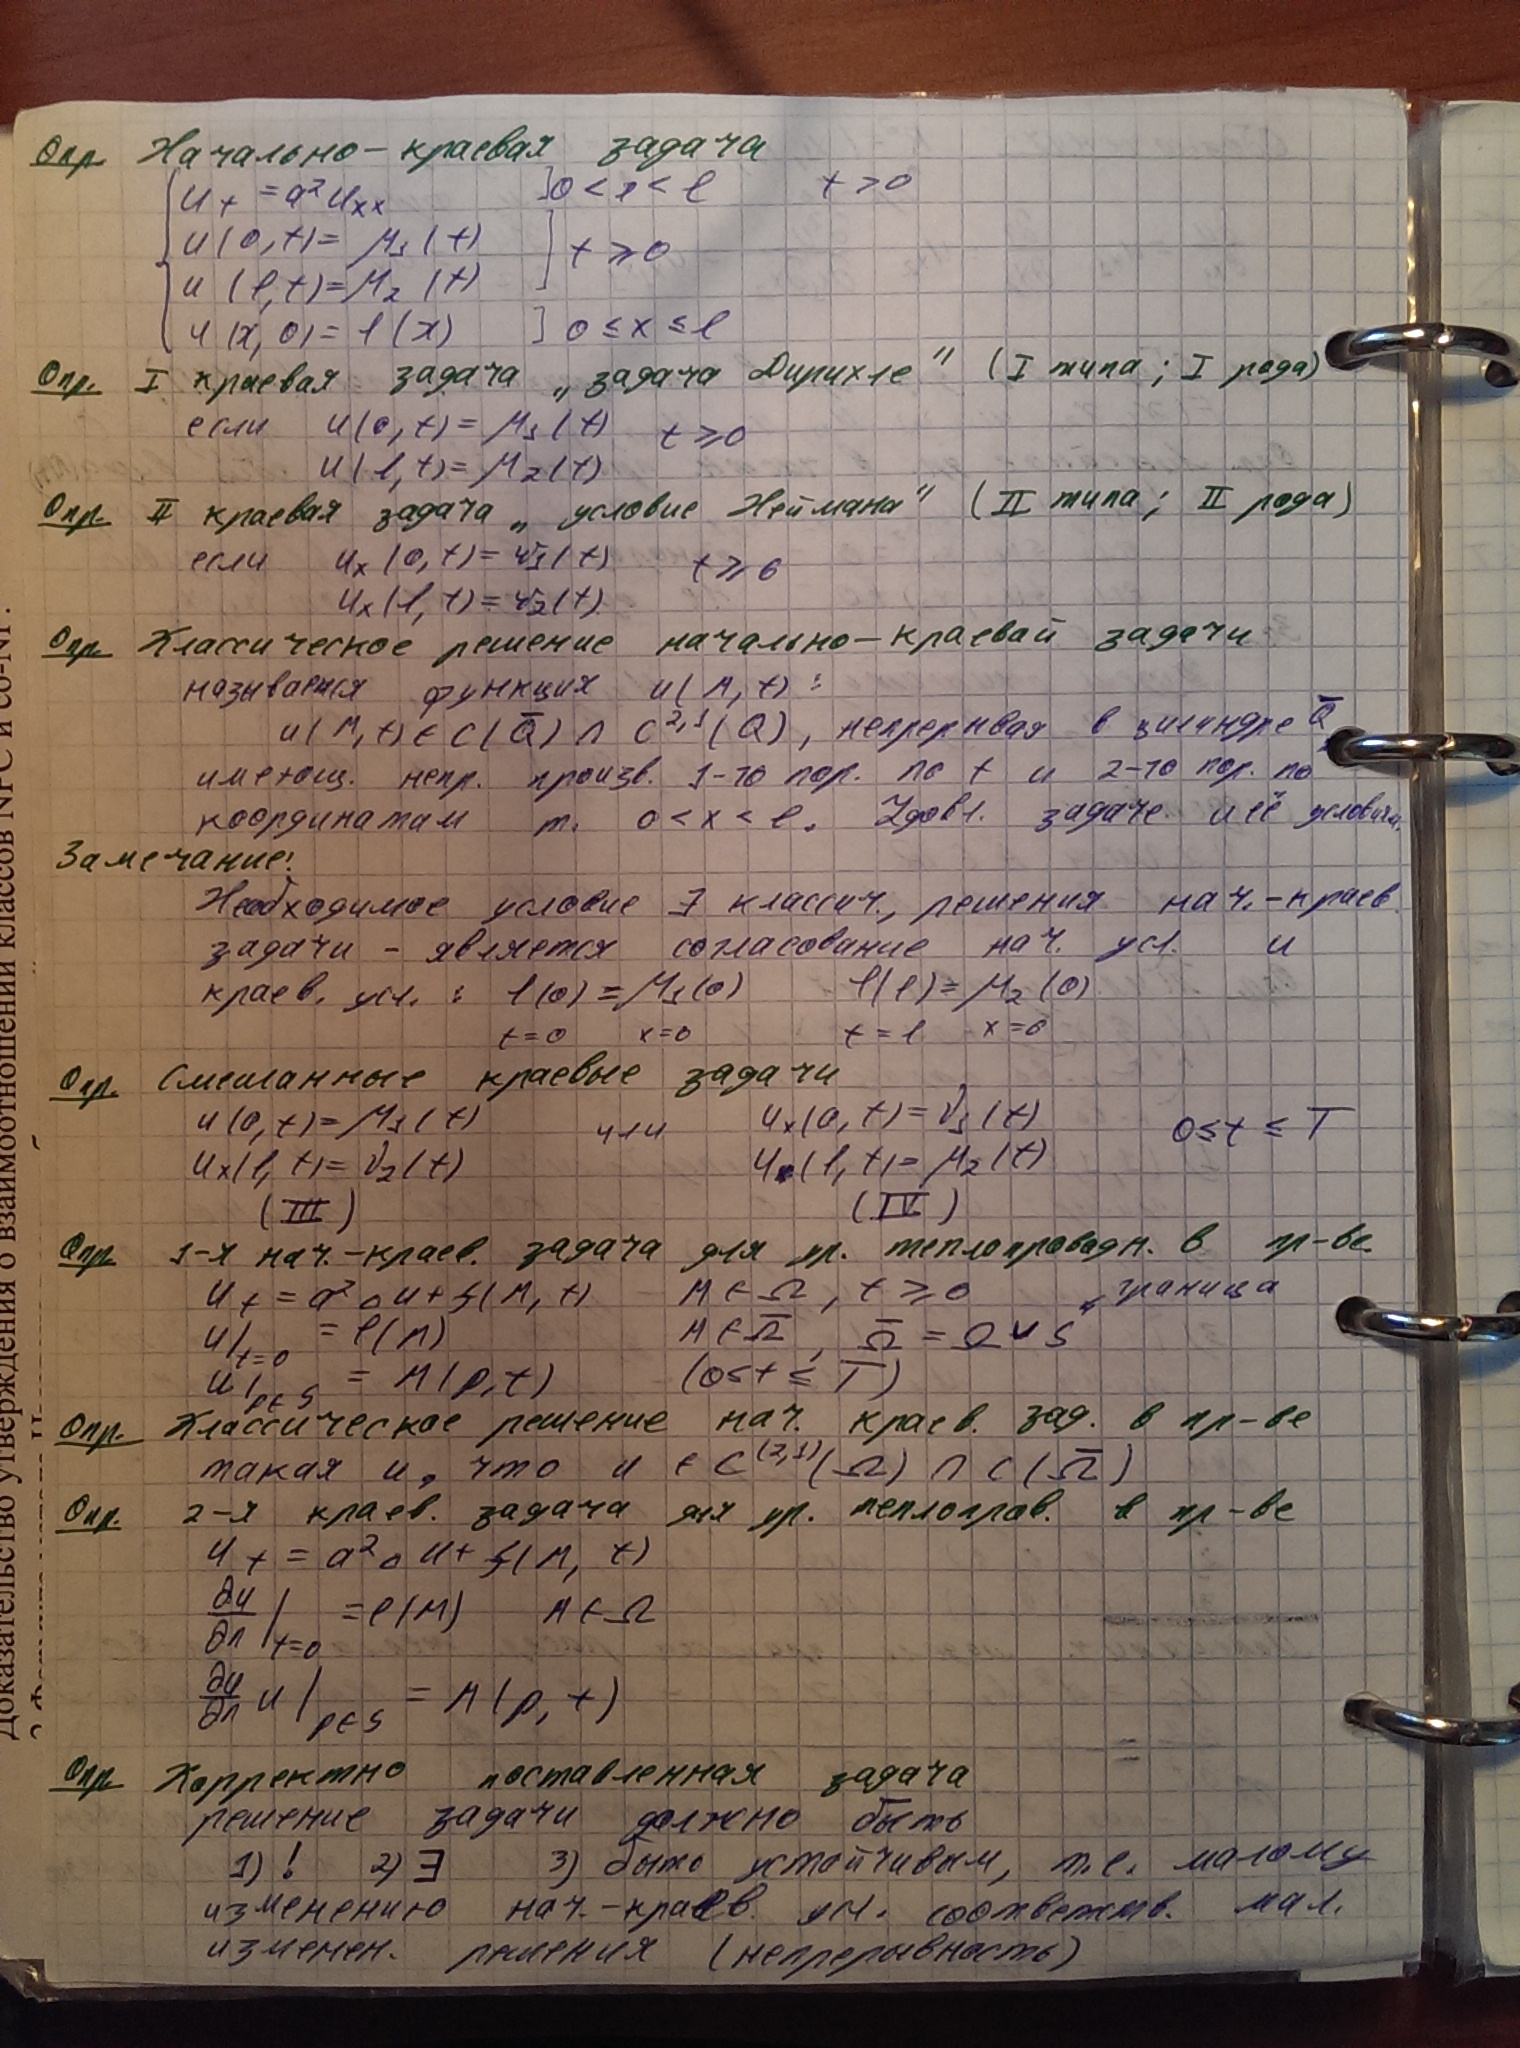 Опр. Начально-краевая задача
u_t = a² u_xx ] 0 < x < l t > 0
u(0,t) = μ₁(t)
] t ≥ 0
u(l,t) = μ₂(t)
u(x,0) = φ(x) ] 0 ≤ x ≤ l
Опр. I краевая задача „задача Дирихле" (I типа; I рода)
если u(0,t) = μ₁(t) t ≥ 0
u(l,t) = μ₂(t)
Опр. II краевая задача „условие Неймана" (II типа; II рода)
если u_x(0,t) = ν₁(t) t ≥ 0
u_x(l,t) = ν₂(t)
Опр. Классическое решение начально-краевой задачи
называется функция u(M,t):
u(M,t) ∈ C(Q̄) ∩ C^{2,1}(Q), непрерывая в цилиндре Q̄
имеющ. непр. произв. 1-го пор. по t и 2-го пор. по
координатам т. 0 < x < l. Удовл. задаче и её условиям.
Замечание:
Необходимое условие ∃ классич. решения нач.-краев.
задачи - является согласование нач. усл. и
краев. усл.: φ(0) = μ₁(0) φ(l) = μ₂(0)
t=0 x=0 t=l x=0
Опр. Смешанные краевые задачи
u(0,t) = μ₁(t) или u_x(0,t) = ν₁(t) 0 ≤ t ≤ T
u_x(l,t) = ν₂(t) u(l,t) = μ₂(t)
(III) (IV)
Опр. 1-я нач.-краев. задача для ур. теплопроводн. в пр-ве.
u_t = a²Δu + f(M,t) M ∈ Ω, t ≥ 0 граница
u|_{t=0} = φ(M) M ∈ Ω̄, Ω̄ = Ω ∪ S
u|_{p∈S} = μ(p,t) (0 ≤ t ≤ T)
Опр. Классическое решение нач. краев. зад. в пр-ве
такая u, что u ∈ C^{(2,1)}(Ω) ∩ C(Ω̄)
Опр. 2-я краев. задача для ур. теплопров. в пр-ве
u_t = a²Δu + f(M,t)
∂u/∂n |_{t=0} = φ(M) M ∈ Ω
∂u/∂n u|_{p∈S} = μ(p,t)
Опр. Корректно поставленная задача
решение задачи должно быть
1) ! 2) ∃ 3) было устойчивым, т.е. малому
изменению нач.-краев. усл. соответств. мал.
изменен. решения (непрерывность)
Доказательство утверждения о взаимоотношении классов NPC и co-NP.